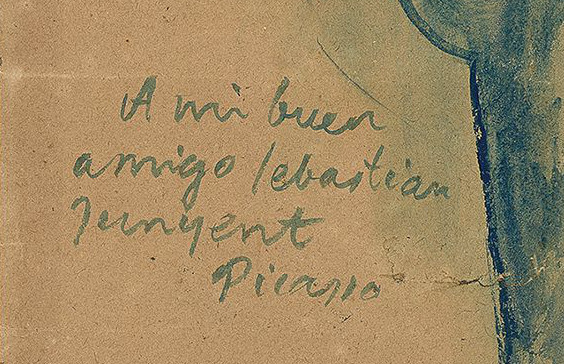 A mi buen
amigo Sebastian
Junyent
Picasso